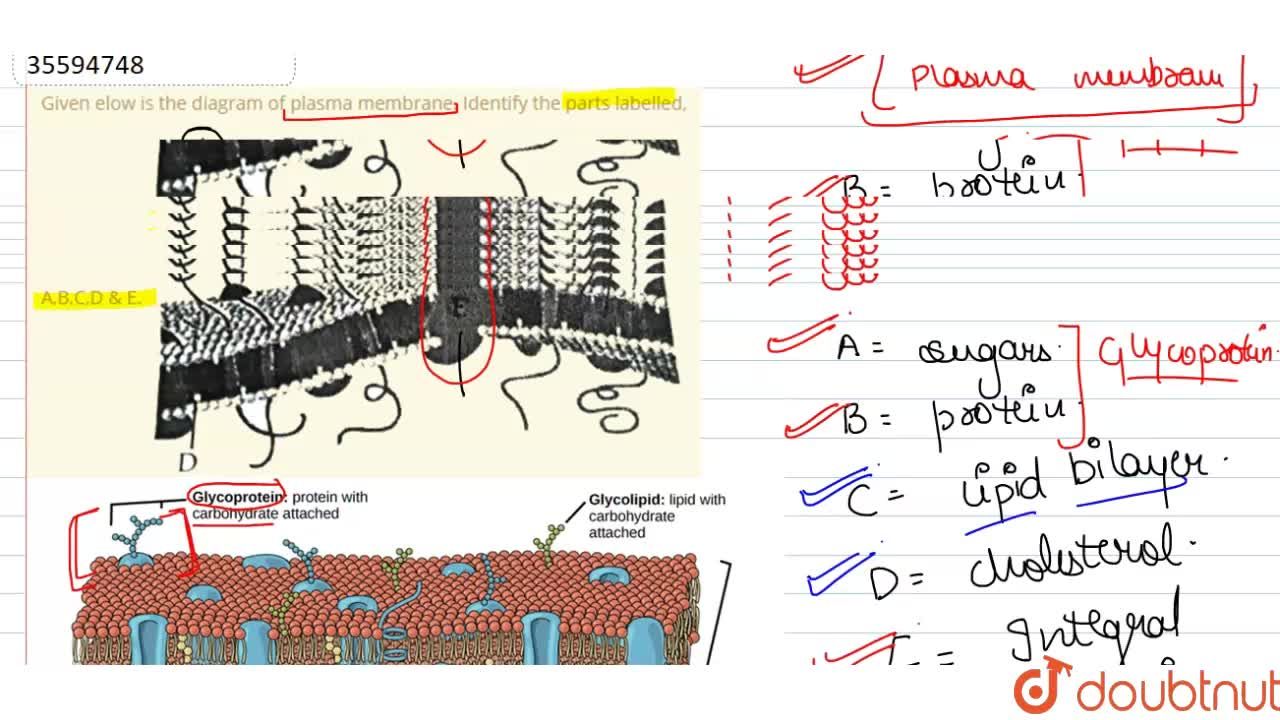 35594748
Given elow is the diagram of plasma membrane, Identify the parts labelled,
A,B,C,D & E.
E
D
Glycoprotein: protein with
carbohydrate attached
Glycolipid: lipid with
carbohydrate
attached
Plasma membram
B = protein
A = sugars
Glycoprotein.
B = protein
C = Lipid bilayer.
D = cholesterol.
= Integral
doubtnut